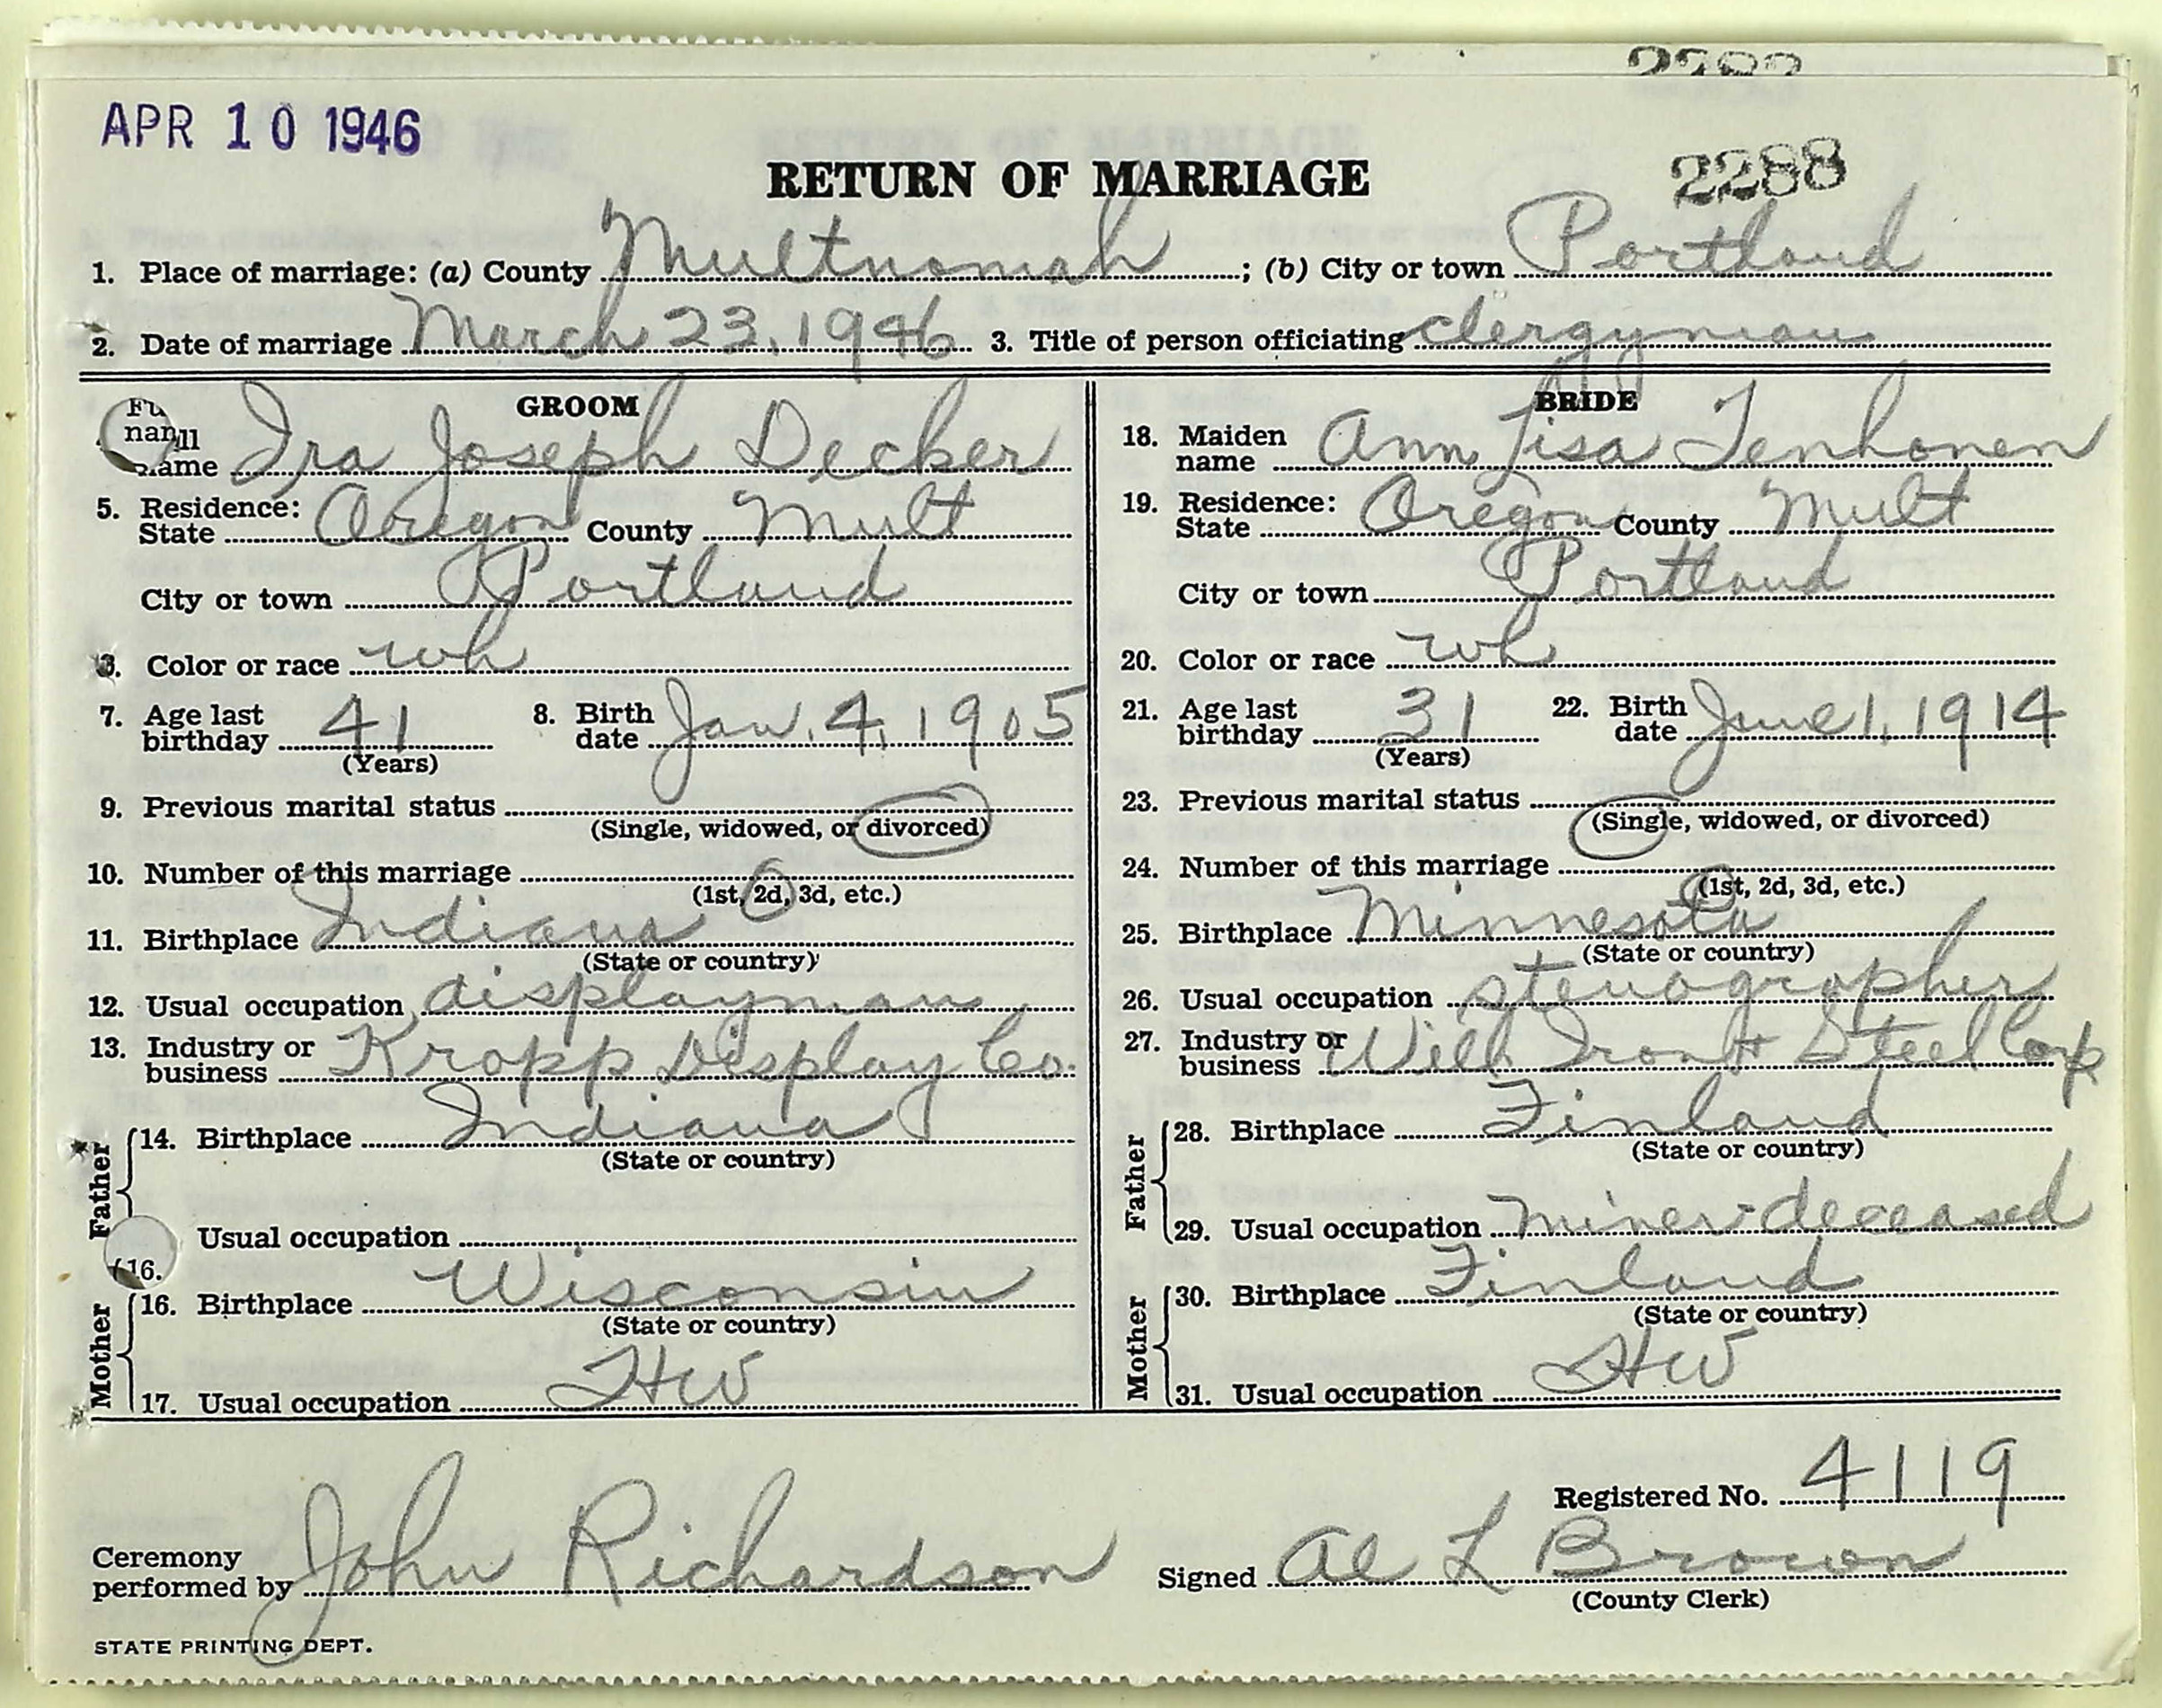 2283
APR 10 1946
RETURN OF MARRIAGE
2288
1. Place of marriage: (a) County Multnomah; (b) City or town Portland
2. Date of marriage March 23, 1946 3. Title of person officiating clergyman
GROOM
Full name Ira Joseph Decker
5. Residence: State Oregon County Mult
City or town Portland
6. Color or race wh
7. Age last birthday 41 (Years) 8. Birth date Jan. 4, 1905
9. Previous marital status
(Single, widowed, or divorced)
10. Number of this marriage
(1st, 2d, 3d, etc.)
11. Birthplace Indiana
(State or country)
12. Usual occupation displayman
13. Industry or business Kropp Display Co.
Father
14. Birthplace Indiana
(State or country)
Usual occupation
16.
Mother
16. Birthplace Wisconsin
(State or country)
17. Usual occupation HW
BRIDE
18. Maiden name Ann Lisa Tenhonen
19. Residence: State Oregon County Mult
City or town Portland
20. Color or race wh
21. Age last birthday 31 (Years) 22. Birth date June 1, 1914
23. Previous marital status
(Single, widowed, or divorced)
24. Number of this marriage
(1st, 2d, 3d, etc.)
25. Birthplace Minnesota
(State or country)
26. Usual occupation stenographer
27. Industry or business Iron & Steel Corp
Father
28. Birthplace Finland
(State or country)
29. Usual occupation miner-deceased
Mother
30. Birthplace Finland
(State or country)
31. Usual occupation HW
Registered No. 4119
Ceremony performed by John Richardson
Signed Al L Brown
(County Clerk)
STATE PRINTING DEPT.